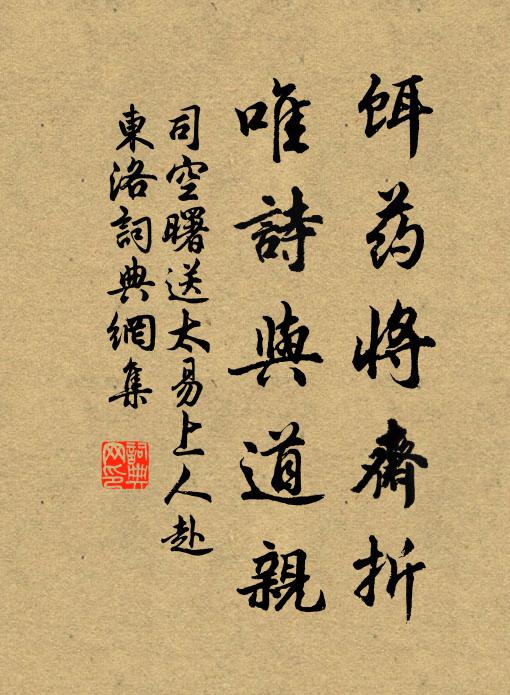 餌药將齋折
唯詩與道親
司空曙送太易上人赴
東洛詞典網集
詞典
网印